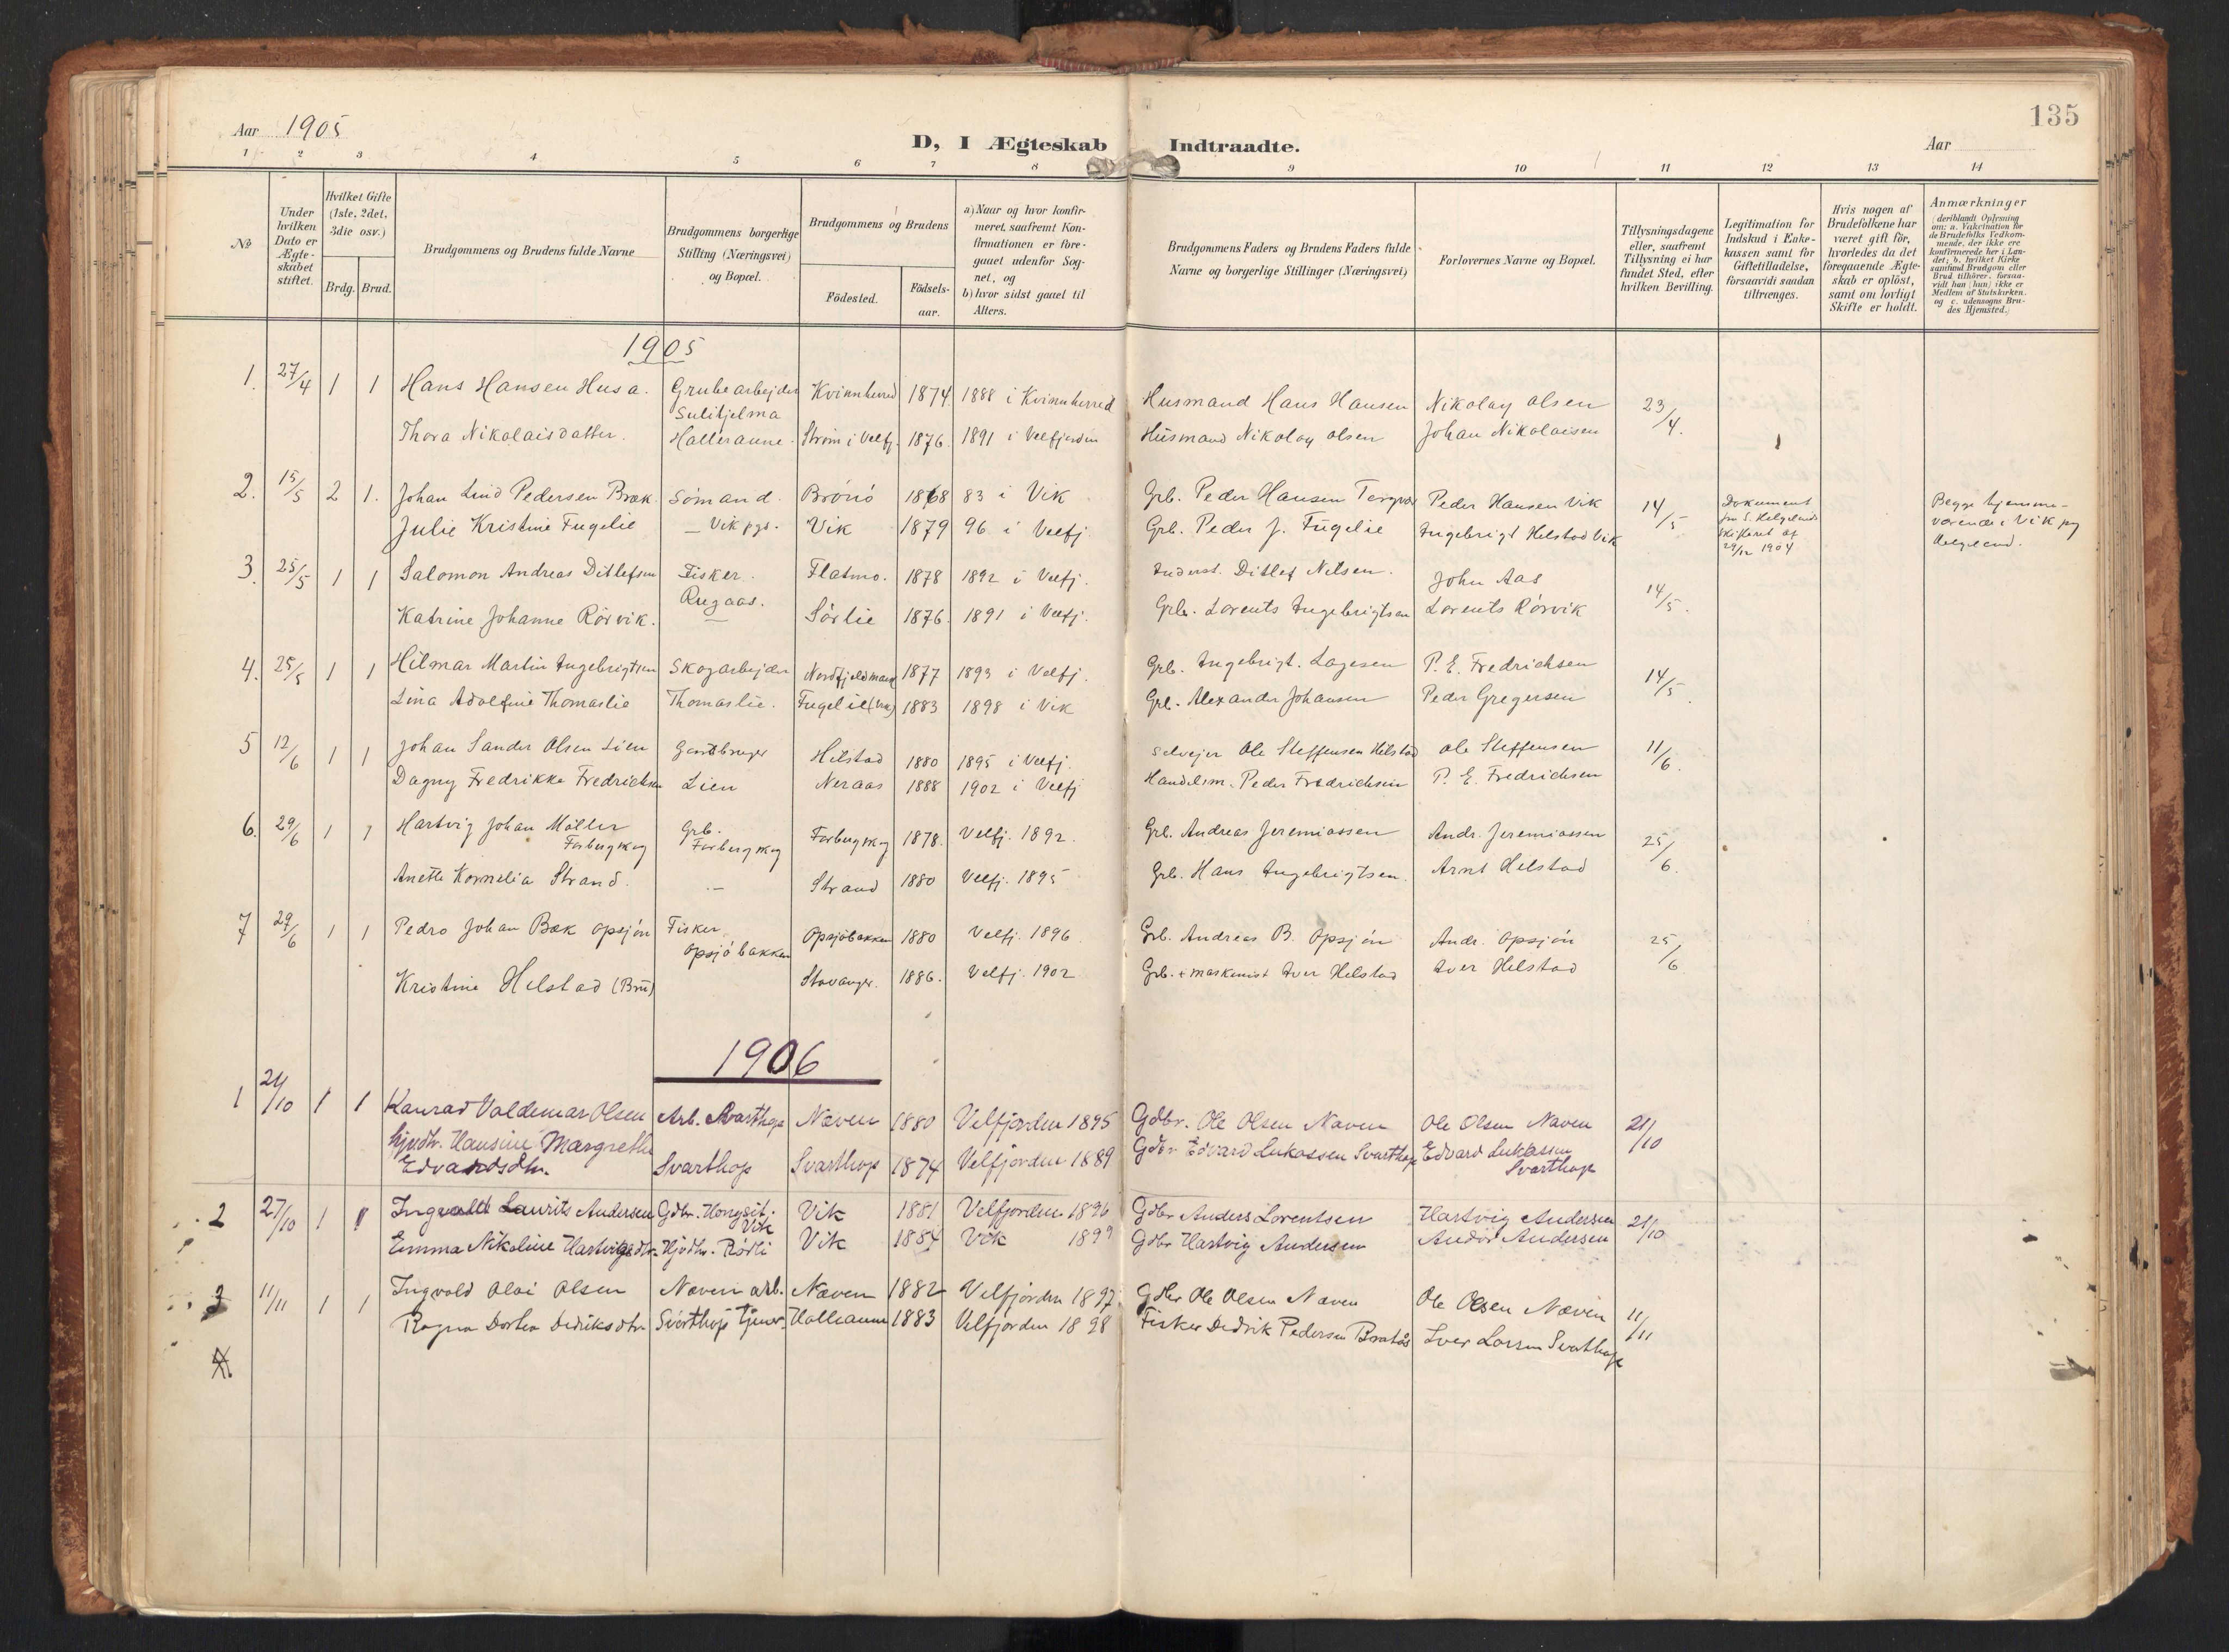 135
Aar 1905
D, I Ægteskab Indtraadte.
Aar
1 2 3 4 5 6 7 8 9 10 11 12 13 14
No
Under hvilken Dato er Ægteskabet stiftet.
Hvilket Gifte (1ste, 2det, 3die osv.)
Brdg. Brud.
Brudgommens og Brudens fulde Navne
Brudgommens borgerlige Stilling (Næringsvei) og Bopæl.
Brudgommens og Brudens
Födested.
Födsels-aar.
a) Naar og hvor konfirmeret, saafremt Konfirmationen er foregaaet udenfor Sognet, og
b) hvor sidst gaaet til Alters.
Brudgommens Faders og Brudens Faders fulde Navne og borgerlige Stillinger (Næringsvei)
Forlovernes Navne og Bopæl.
Tillysningsdagene eller, saafremt Tillysning ei har fundet Sted, efter hvilken Bevilling.
Legitimation for Indskud i Enkekassen samt for Giftetilladelse, forsaavidt saadan tiltrænges.
Hvis nogen af Brudefolkene har været gift för, hvorledes da det foregaaende Ægteskab er oplöst, samt om lovligt Skifte er holdt.
Anmærkninger (deriblandt Oplysning om: a. Vakcination for de Brudefolks Vedkommende, der ikke ere konfirmerede her i Landet; b. hvilket Kirkesamfund Brudgom eller Brud tilhörer, forsaavidt han (hun) ikke er Medlem af Statskirken, og c. udensogns Brudes Hjemsted.)
1905
1. 27/4 1 1 Hans Hansen Husa. Grubearbejder Sulitjelma Kvinnherred 1874 1888 i Kvinnherred Husmand Hans Hansen Nikolay Olsen 23/4.
Thora Nikolaisdatter. Halleraune. Strøm i Velfj. 1876. 1891 i Velfjorden Husmand Nikolay Olsen Johan Nikolaisen
2. 15/5 2 1. Johan Lind Pedersen Bræk Sömand. Brönö 1868 83 i Vik Grb. Peder Hansen Peder Hansen Vik 14/5 Dokument fra S. Helgelands Skifteret af 29/12 1904 Begge hjemmeværende i Vik pg Helgeland.
Julie Kristine Fugelie — Vik pgs. Vik 1879 96 i Velfj Grb. Peder J. Fugelie Ingebrigt Helstad Vik
3. 25/5 1 1 Salomon Andreas Ditlefsen Fisker. Rugaas. Flatmo. 1878 1892 i Velfj. Inderst. Ditlef Nilsen. John Aas 14/5.
Katrine Johanne Rörvik. — Sörlie 1876. 1891 i Velfj. Grb. Lorents Ingebrigtsen Lorents Rörvik
4. 25/5 1 1 Hilmar Martin Ingebrigtsen Skogarbejder Nordfjeldmark 1877 1893 i Velfj. Grb. Ingebrigt. Lagesen P. E. Fredrichsen 14/5.
Lina Adolfine Thomaslie Thomaslie. Fugelie (Vik) 1883 1898 i Vik Grb. Alexander Johansen Peder Gregersen
5 12/6 1 1 Johan Sander Olsen Lien Gaardbruger Helstad 1880 1895 i Velfj. Selvejer Ole Steffensen Helstad Ole Steffensen 11/6.
Dagny Fredrikke Fredrichsen Lien Neraas 1888 1902 i Velfj Handelsm. Peder Fredrichsen P. E. Fredrichsen
6. 29/6 1 1 Hartvig Johan Möller Forbergskog Grb. Forbergskog Forbergskog 1878. Velfj. 1892. Grb. Andreas Jeremiassen Andr. Jeremiassen 25/6.
Anette Kornelia Strand. — Strand 1880 Velfj. 1895 Grb. Hans Ingebrigtsen. Arnt Helstad
7 29/6 1 1 Pedro Johan Bæk Opsjön Fisker Opsjöbakken Opsjöbakken 1880 Velfj. 1896. Grb. Andreas B. Opsjön Andr. Opsjön 25/6
Kristine Helstad Stavanger. 1886. Velfj. 1902 Grb. + maskinist Iver Helstad Iver Helstad
1906
1 21/10 1 1 Konrad Valdemar Olsen Arb. Svarthop Næven 1880 Velfjorden 1895 Gdbr. Ole Olsen Næven Ole Olsen Næven 21/10
hjvdtr. Hansine Margrethe Edvardsdtr. Svarthop Svarthop 1874 Velfjorden 1889 Gdbr Edvard Lukassen Svarthop Edvard Lukassen Svarthop
2 27/10 1 1 Ingvald Laurits Andersen Gdbr. Vik Vik 1881 Velfjorden 1896 Gdbr Anders Lorentsen Hartvig Andersen 21/10
Emma Nikoline Hartvigsdtr. Hjvdtr. Rödli Vik 1884 Vik 1899 Gdbr Hartvig Andersen Andor Andersen
3 11/11 1 1 Ingvold Olai Olsen Næven arb. Næven 1882 Velfjorden 1897 Gdbr Ole Olsen Næven Ole Olsen Næven 11/11
Ragna Dortea Dedriksdtr. Svarthop tjener. Halleraune 1883 Velfjorden 1898 Fisker Dedrik Pedersen Iver Larsen Svarthop